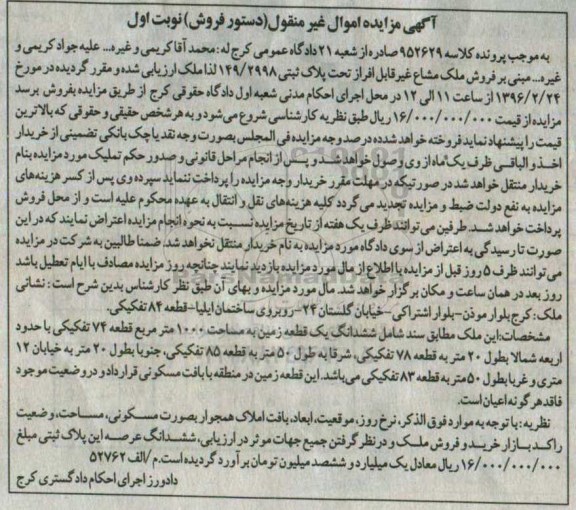 آگهی مزایده اموال غیر منقول(دستور فروش) نوبت اول
به موجب پرونده کلاسه ۹۵۲۶۲۹ صادره از شعبه ۲۱ دادگاه عمومی کرج له: محمد آقا کریمی و غیره... علیه جواد کریمی و
غیره... مبنی بر فروش ملک مشاع غیر قابل افراز تحت پلاک ثبتی ۱۴۹/۲۹۹۸ لذا ملک ارزیابی شده و مقرر گردیده در مورخ
۱۳۹۶/۲/۲۴ از ساعت ۱۱ الی ۱۲ در محل اجرای احکام مدنی شعبه اول دادگاه حقوقی کرج از طریق مزایده بفروش برسد
مزایده از قیمت ۱۶/۰۰۰/۰۰۰/۰۰۰ ریال طبق نظریه کارشناسی شروع می‌شود و به هر شخص حقیقی و حقوقی که بالاترین
قیمت را پیشنهاد نماید فروخته خواهد شد ده درصد وجه مزایده فی المجلس بصورت وجه نقد یا چک بانکی تضمینی از خریدار
اخذ و الباقی ظرف یک ماه از وی وصول خواهد شد و پس از انجام مراحل قانونی و صدور حکم تملیک مورد مزایده بنام
خریدار منتقل خواهد شد در صورتیکه در مهلت مقرر خریدار وجه مزایده را پرداخت ننماید سپرده وی پس از کسر هزینه‌های
مزایده به نفع دولت ضبط و مزایده تجدید می گردد کلیه هزینه‌های نقل و انتقال به عهده محکوم علیه است و از محل فروش
پرداخت خواهد شد. طرفین می توانند ظرف یک هفته از تاریخ مزایده نسبت به نحوه انجام مزایده اعتراض نمایند که در این
صورت تا رسیدگی به اعتراض از سوی دادگاه مورد مزایده به نام خریدار منتقل نخواهد شد. ضمنا طالبین به شرکت در مزایده
می توانند ظرف ۵ روز قبل از مزایده با اطلاع از مال مورد مزایده بازدید نمایند چنانچه روز مزایده مصادف با ایام تعطیل باشد
روز بعد در همان ساعت و مکان برگزار خواهد شد. مال مورد مزایده و بهای آن طبق نظر کارشناس بدین شرح است: نشانی
ملک: کرج بلوار موذن-بلوار اشتراکی-خیابان گلستان ۲۴-روبروی ساختمان ایلیا-قطعه ۸۴ تفکیکی.
مشخصات: این ملک مطابق سند شامل ششدانگ یک قطعه زمین به مساحت ۱۰۰۰ متر مربع قطعه ۷۴ تفکیکی با حدود
اربعه شمالا بطول ۲۰ متر به قطعه ۷۸ تفکیکی، شرقا به طول ۵۰ متر به قطعه ۸۵ تفکیکی، جنوبا بطول ۲۰ متر به خیابان ۱۲
متری و غربا بطول ۵۰ متر به قطعه ۸۳ تفکیکی می باشد. این قطعه زمین در منطقه با بافت مسکونی قرار داد و در وضعیت موجود
فاقد هر گونه اعیان است.
نظریه: با توجه به موارد فوق الذکر، نرخ روز، موقعیت، ابعاد، بافت املاک همجوار بصورت مسکونی، مساحت، وضعیت
راکد بازار خرید و فروش ملک و در نظر گرفتن جمیع جهات موثر در ارزیابی، ششدانگ عرصه این پلاک ثبتی مبلغ
۱۶/۰۰۰/۰۰۰/۰۰۰ ریال معادل یک میلیارد و ششصد میلیون تومان برآورد گردیده است. م/الف ۵۲۷۶۲
دادورز اجرای احکام دادگستری کرج